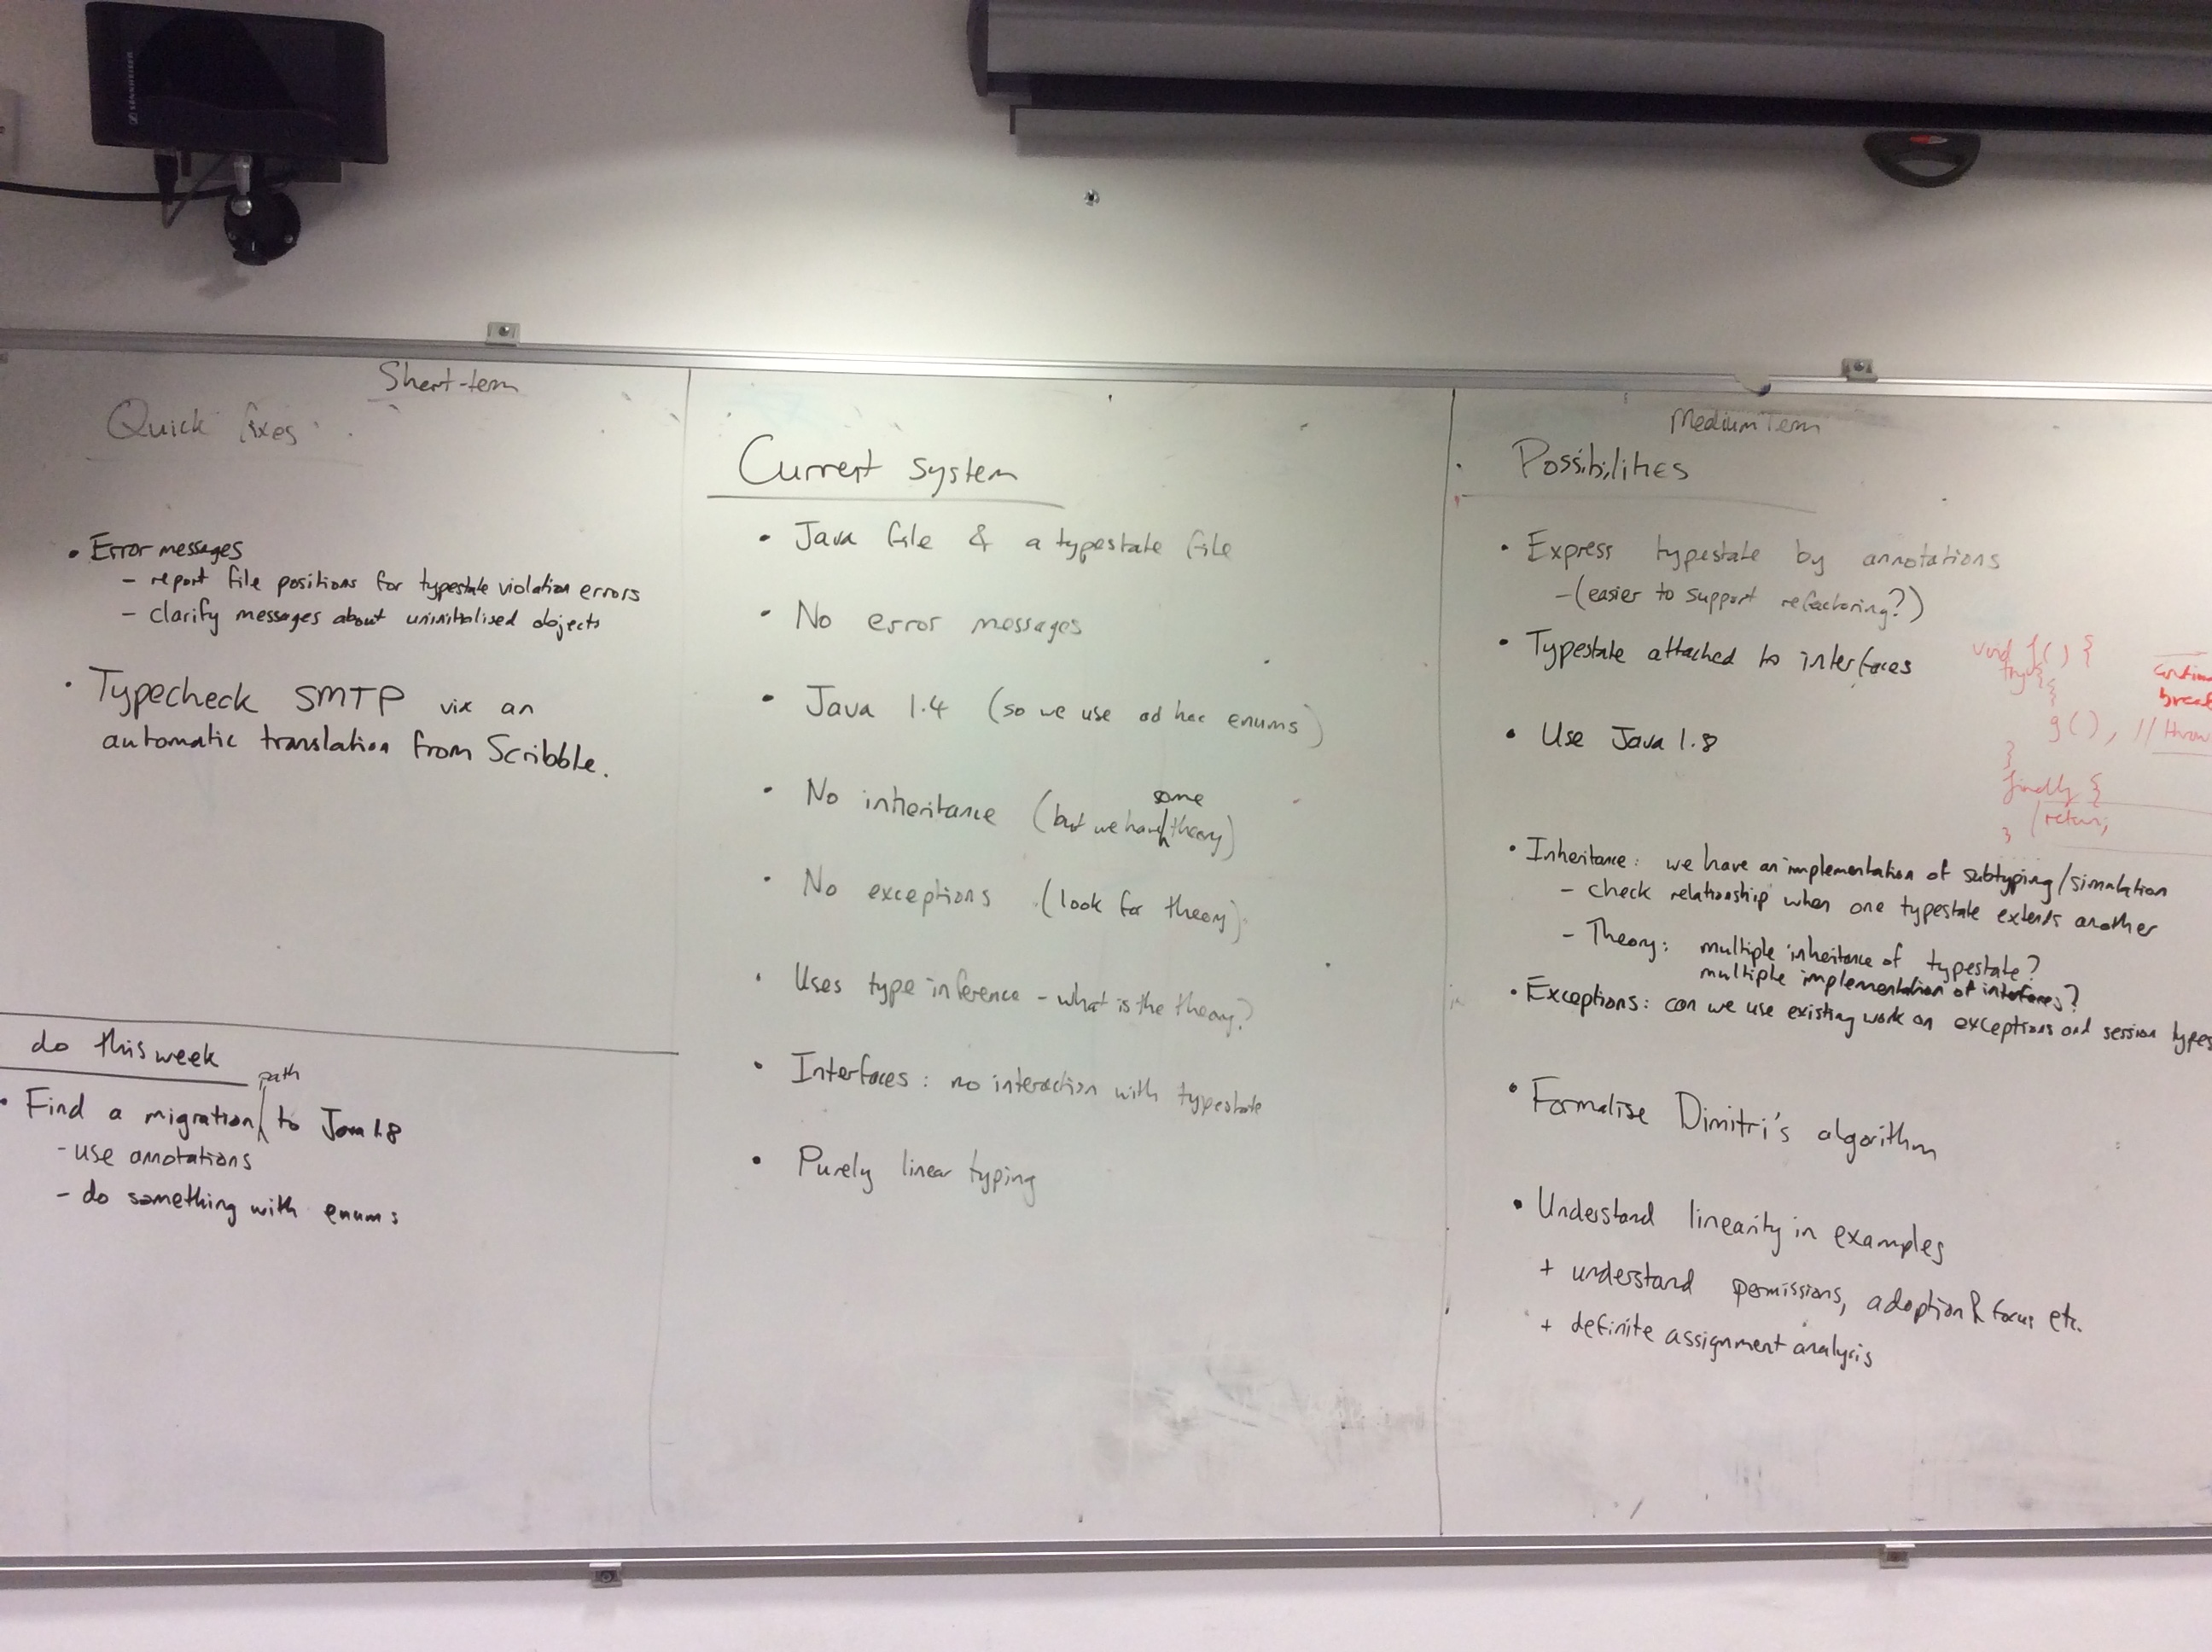 SENNHEISER
Short-term
Quick fixes
• Error messages
– report file positions for typestate violation errors
– clarify messages about uninitialised objects
• Typecheck SMTP via an
automatic translation from Scribble.
do this week
path
• Find a migration to Java 1.8
- use annotations
– do something with enums
Current system
• Java file & a typestate file
• No error messages
• Java 1.4 (so we use ad hoc enums)
some
• No inheritance (but we have theory)
• No exceptions (look for theory)
• Uses type inference – what is the theory?
• Interfaces: no interaction with typestate
• Purely linear typing
Medium Term
Possibilities
• Express typestate by annotations
– (easier to support refactoring?)
• Typestate attached to interfaces
• Use Java 1.8
• Inheritance: we have an implementation of subtyping/simulation
– check relationship when one typestate extends another
– Theory: multiple inheritance of typestate?
multiple implementation of interfaces?
• Exceptions: can we use existing work on exceptions and session types
• Formalise Dimitri's algorithm
• Understand linearity in examples
+ understand permissions, adoption & focus etc.
+ definite assignment analysis
void f() {
try {
{
g(), // throw
}
finally {
return;
}